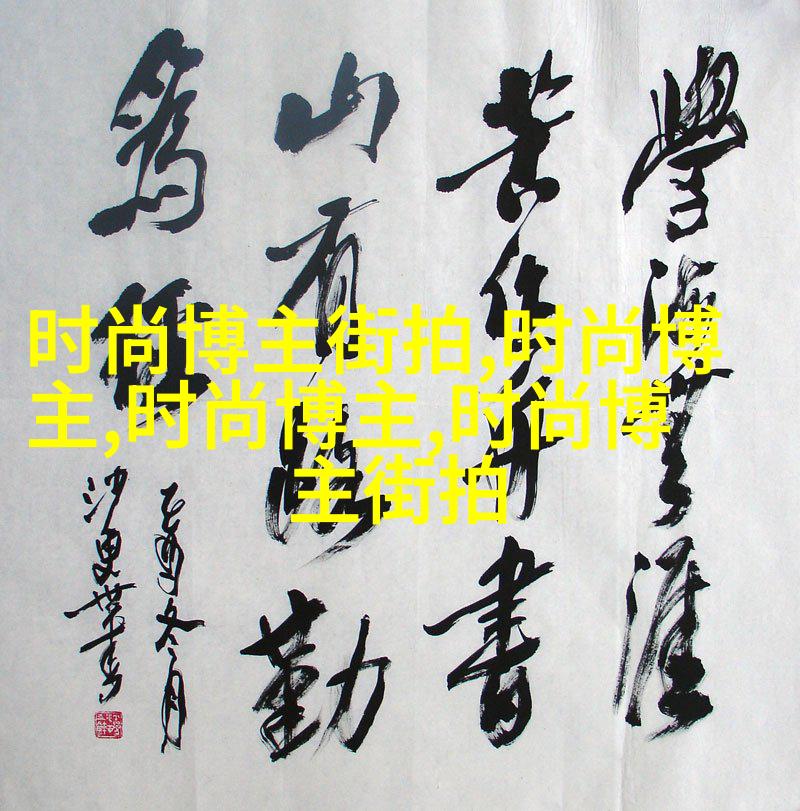 时尚博主街拍,时尚博
主,时尚博主,时尚博
主街拍
學海無涯
苦作舟書
山有路勤
為徑
乙酉冬月
沙更世书